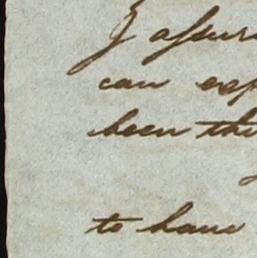 I assur
can exp
been the
to have